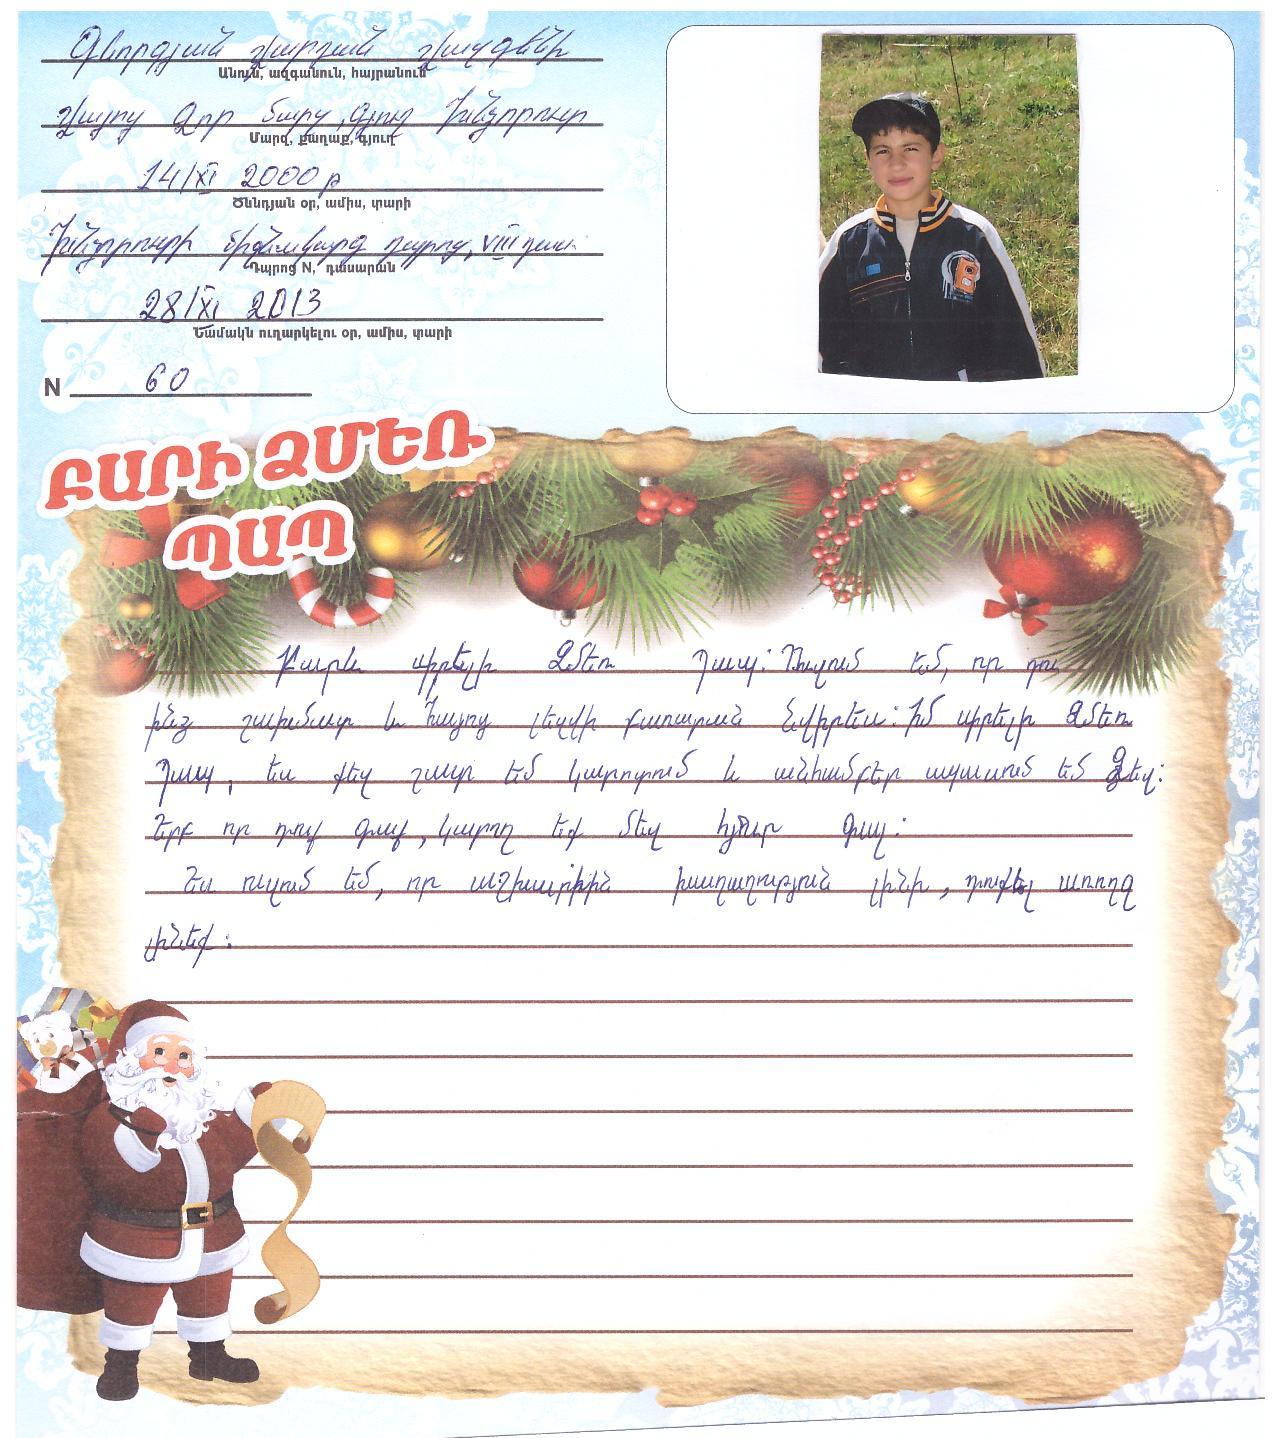 Գևորգյան Վարդան Վազգենի
Անուն, ազգանուն, հայրանուն
Վայոց Ձոր մարզ, գյուղ Խնձորուտ
Մարզ, քաղաք, գյուղ
14/XI 2000թ
Ծննդյան օր, ամիս, տարի
Խնձորուտի միջնակարգ դպրոց, VIII դաս.
Դպրոց N, դասարան
28/XI 2013
Նամակն ուղարկելու օր, ամիս, տարի
N 60
ԲԱՐԻ ՁՄԵՌ
ՊԱՊ
Բարև սիրելի Ձմեռ Պապ: Ուզում եմ, որ դու
ինձ շախմատ և հայոց լեզվի բառարան նվիրես: Իմ սիրելի Ձմեռ
Պապ, ես քեզ շատ եմ կարոտում և անհամբեր սպասում եմ Ձեզ:
Երբ որ դուք գաք, կարող եք մեզ հյուր գալ:
Ես ուզում եմ, որ աշխարհին խաղաղություն լինի, դուքել առողջ
լինեք: